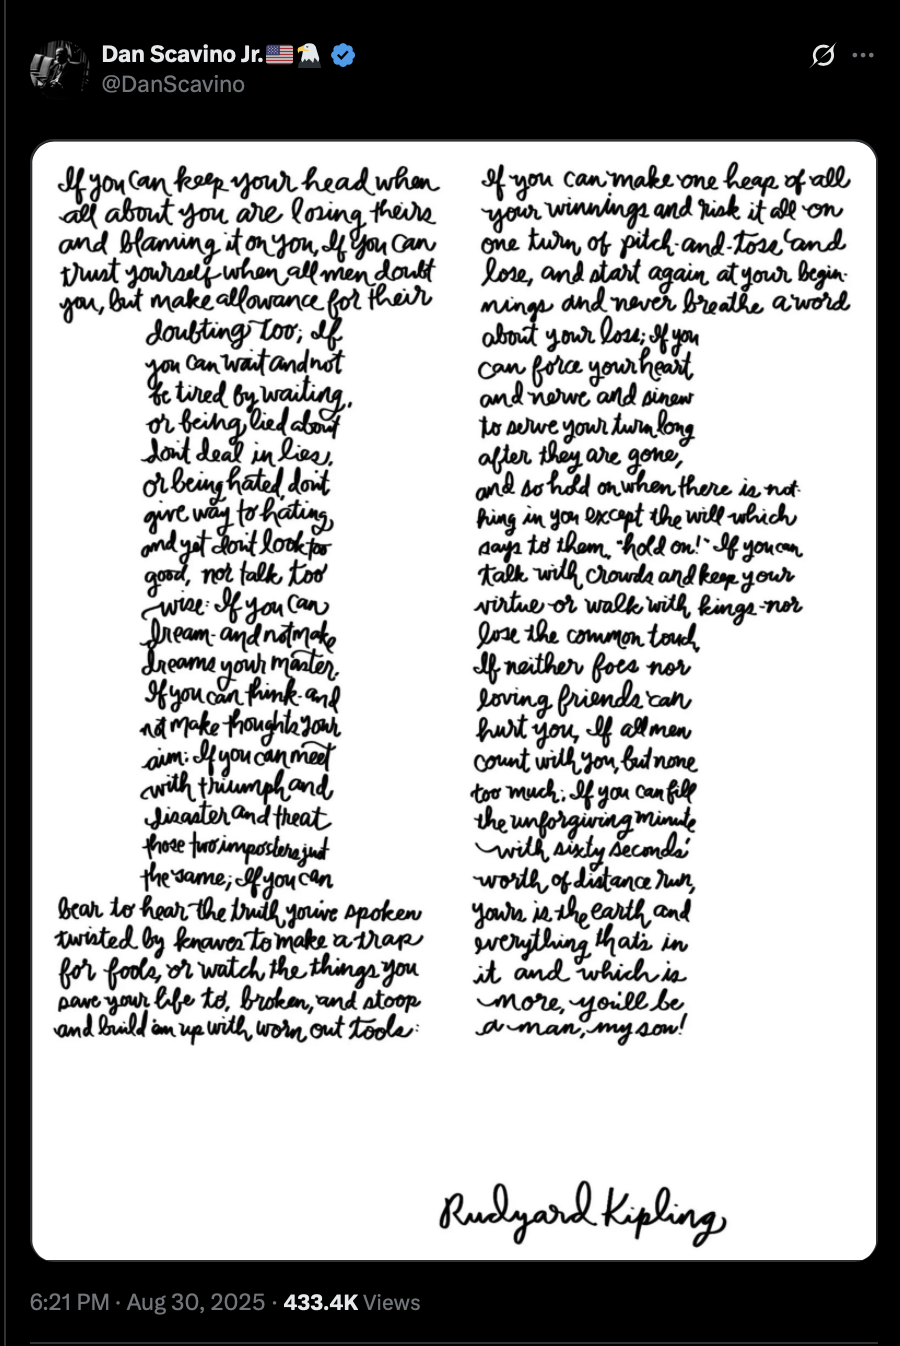 Dan Scavino Jr.🇺🇸🦅
@DanScavino
If you can keep your head when
all about you are losing theirs
and blaming it on you, If you can
trust yourself when all men doubt
you, but make allowance for their
doubting too; If
you can wait and not
be tired by waiting,
or being lied about
don't deal in lies,
or being hated, don't
give way to hating,
and yet don't look too
good, nor talk too
wise: If you can
dream-and not make
dreams your master,
If you can think-and
not make thoughts your
aim: If you can meet
with triumph and
disaster and treat
those two imposters just
the same; If you can
bear to hear the truth you've spoken
twisted by knaves to make a trap
for fools, or watch the things you
gave your life to, broken, and stoop
and build 'em up with worn out tools:
If you can make one heap of all
your winnings and risk it all on
one turn of pitch-and-toss, and
lose, and start again at your begin-
nings and never breathe a word
about your loss; If you
can force your heart
and nerve and sinew
to serve your turn long
after they are gone,
and so hold on when there is not-
hing in you except the will which
says to them, "hold on!" If you can
talk with crowds and keep your
virtue or walk with kings-nor
lose the common touch,
If neither foes nor
loving friends can
hurt you, If all men
count with you, but none
too much; If you can fill
the unforgiving minute
with sixty seconds'
worth of distance run,
yours is the earth and
everything that's in
it and which is
more, you'll be
a man, my son!
Rudyard Kipling
6:21 PM · Aug 30, 2025 · 433.4K Views